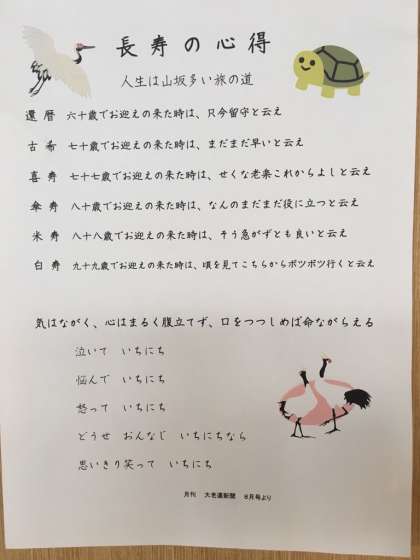 長寿の心得
人生は山坂多い旅の道
還暦 六十歳でお迎えの来た時は、只今留守と云え
古希 七十歳でお迎えの来た時は、まだまだ早いと云え
喜寿 七十七歳でお迎えの来た時は、せくな老楽これからよと云え
傘寿 八十歳でお迎えの来た時は、なんのまだまだ役に立つと云え
米寿 八十八歳でお迎えの来た時は、そう急がずとも良いと云え
白寿 九十九歳でお迎えの来た時は、頃を見てこちらからボツボツ行くと云え
気はながく、心はまるく腹立てず、口をつつしめば命ながらえる
泣いて いちにち
悩んで いちにち
怒って いちにち
どうせ おんなじ いちにちなら
思いきり笑って いちにち
月刊 大老連新聞 8月号より